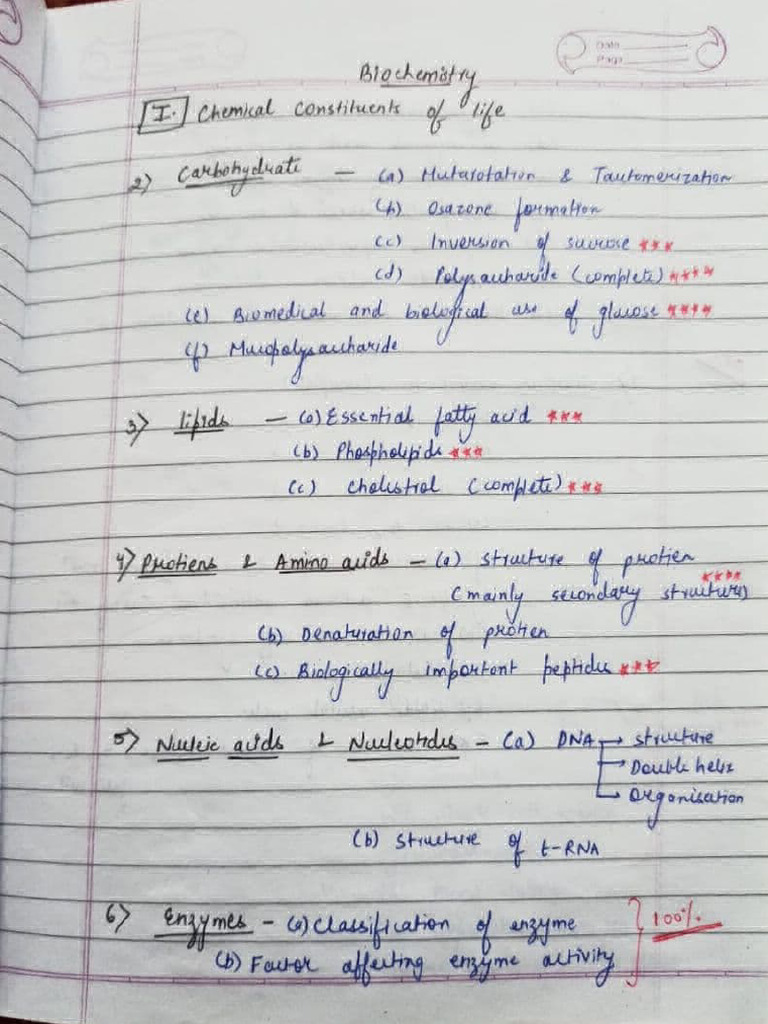 Biochemistry
I. Chemical constituents of life
2) Carbohydrate - (a) Mutarotation & Tautomerization
(b) Osazone formation
(c) Inversion of sucrose ***
(d) Polysaccharide (complete) ****
(e) Biomedical and biological use of glucose ****
(f) Mucopolysaccharide
3) lipids - (a) Essential fatty acid ***
(b) Phospholipids ***
(c) Cholestrol (complete) ***
4) Protiens & Amino acids - (a) structure of protien
(mainly secondary structure) ****
(b) Denaturation of protien
(c) Biologically important peptides ***
5) Nucleic acids & Nucleotides - (a) DNA → structure
→ Double helix
→ Organisation
(b) structure of t-RNA
6) Enzymes - (a) Classification of enzyme
(b) Factor affecting enzyme activity } 100%.